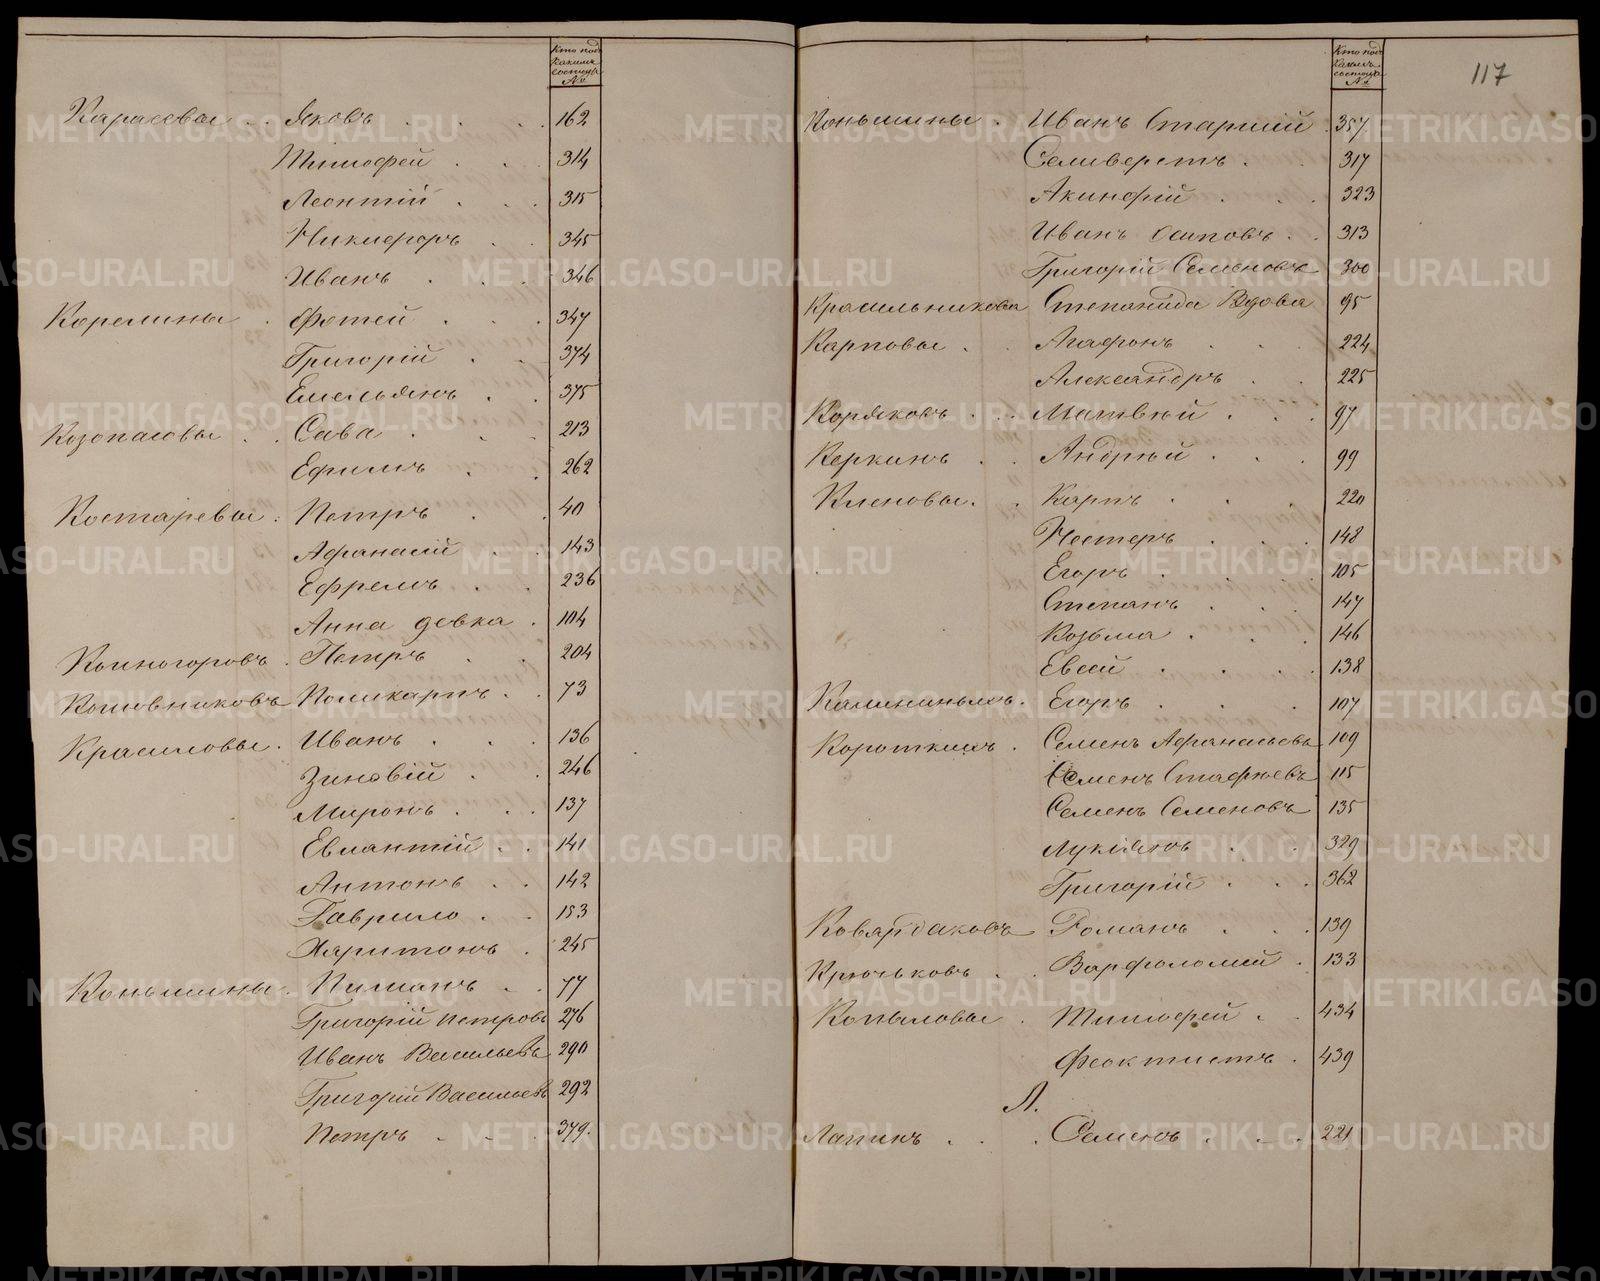 Кто подъ
какимъ
состоитъ
№
Карасевы . . Яковъ . . . 162
Тимофей . . 314
Леонтий . . . 315
Никифоръ . . 345
Иванъ . . . 346
Корелины . Фотей . . . 347
Григорій . . 374
Емельянъ . . 375
Козопасовы . . Сава . . . 213
Ефимъ . . 262
Костаревы . Петръ . . 40
Афанасій . . 143
Ефремъ . . 236
Анна девка . 104
Копногоровъ . Петръ . . 204
Котовниковъ Поликарпъ . . 73
Красиловы . Иванъ . . . 136
Зиновій . . 246
Миронъ . . . 137
Евлантий . . 141
Антонъ . . 142
Гаврило . . 153
Харитонъ . 245
Коньшины . Пиманъ . . 77
Григорій Петровъ 276
Иванъ Васильевъ 290
Григорій Васильевъ 292
Петръ . . . 379.
Кто подъ
какимъ
состоитъ
№
117
Коньшины . Иванъ Старшій . 357.
Селиверстъ . 317
Акинфій . . . 323
Иванъ Осиповъ . . 313
Григорій Семеновъ 300
Красильникова Степанида Вдова 95
Карповы . . Агафонъ . . . 224
Александръ . . 225
Коряковъ . . . Матвѣй . . . 97
Керкинъ . . Андрѣй . . . 99
Кленовы . . Карпъ . . . 220
Нестеръ . . . 148
Егоръ . . . 105
Степанъ . . . 147
Козьма . . . 146
Евсей . . . . 138
Калининыхъ . Егоръ . . . 107
Короткихъ . Семенъ Афанасьевъ 109
Семенъ Стафѣевъ 115
Семенъ Семеновъ 135
Лукіянъ . . 329
Григорій . . . 362
Ковардаковъ Романъ . . . 139
Крючьковъ . . Варфоломей . 133
Копыловы . Тимофей . . 434
Феоктистъ . 439
Л.
Лапинъ . . . Семенъ . . . 221
METRIKI.GASO-URAL.RU